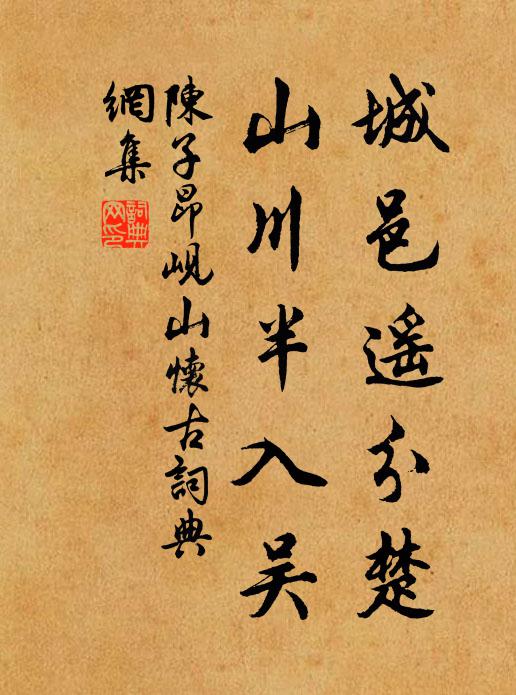 城邑遥分楚
山川半入吴
陳子昂峴山懷古詞典
網集
詞典
网印